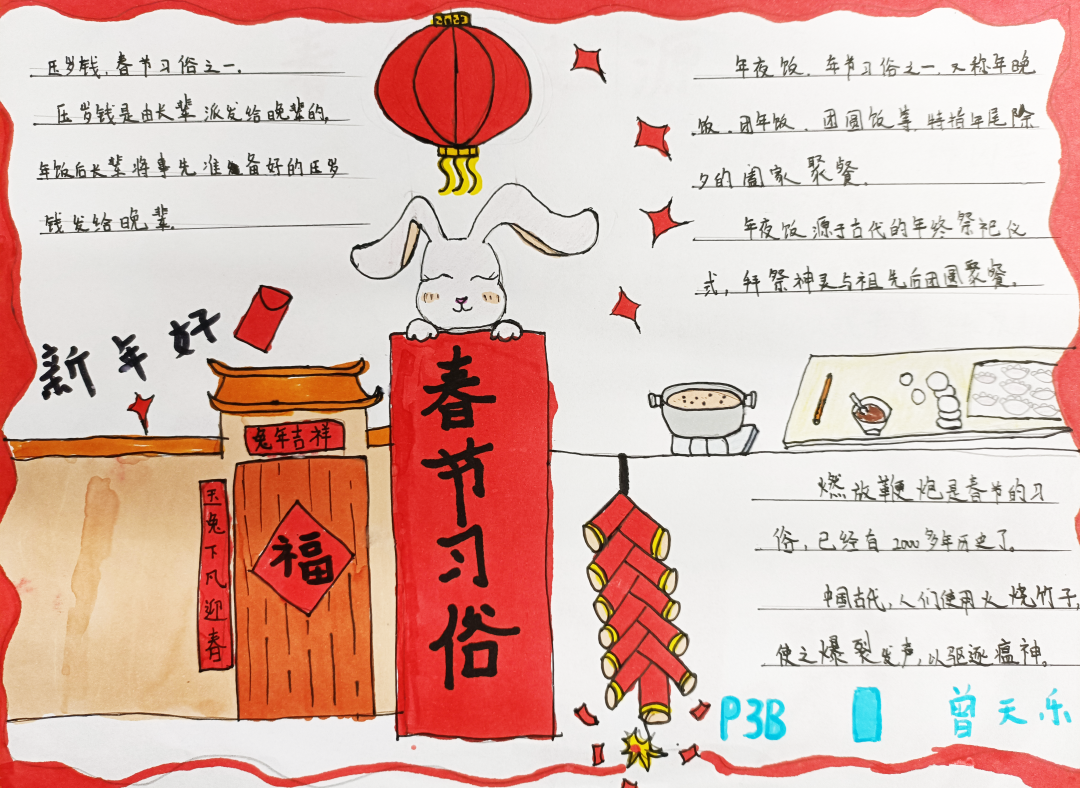 压岁钱，春节习俗之一，
压岁钱是由长辈派发给晚辈的，
年饭后长辈将事先准备好的压岁
钱发给晚辈。
新年好
兔年吉祥
玉兔下凡迎春
福
春节习俗
年夜饭，年节习俗之一，又称年晚
饭、团年饭、团圆饭等，特指年尾除
夕的阖家聚餐。
年夜饭源于古代的年终祭祀仪
式，拜祭神灵与祖先后团圆聚餐。
燃放鞭炮是春节的习
俗，已经有2000多年历史了。
中国古代，人们使用火烧竹子，
使之爆裂发声，以驱逐瘟神。
P3B
曾天乐